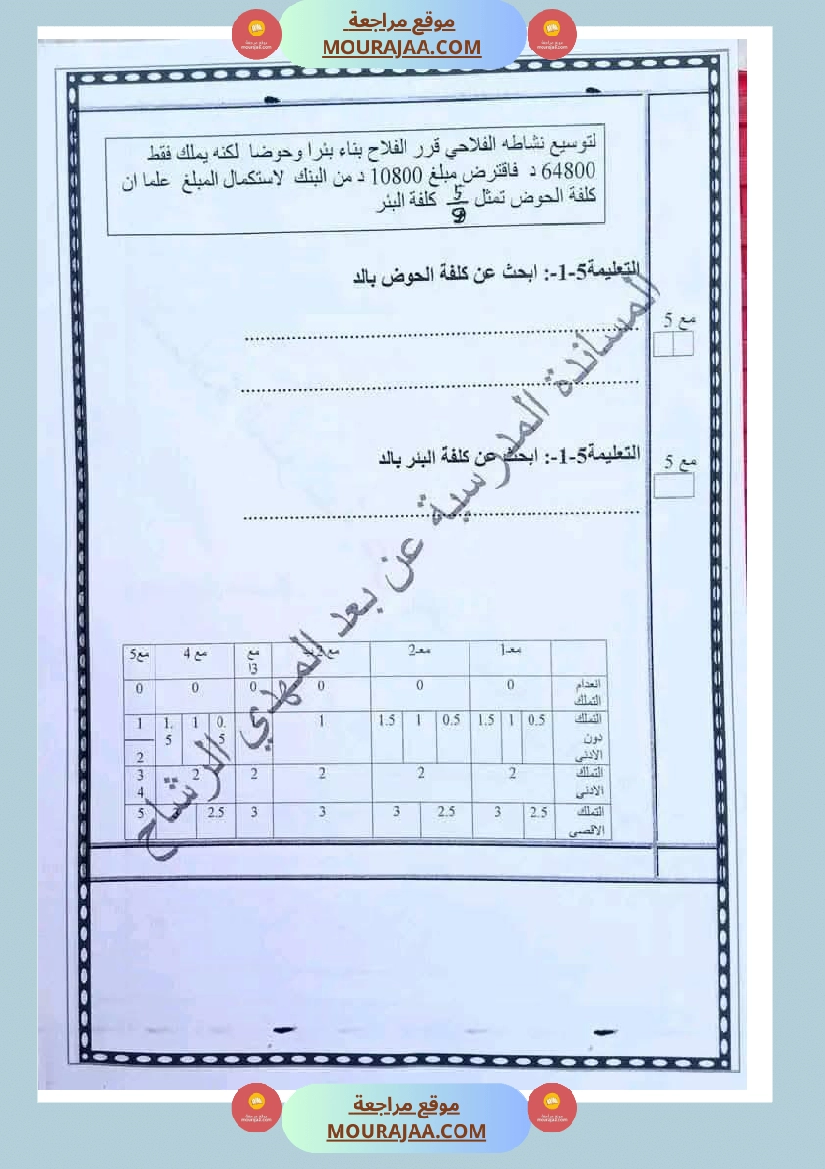 موقع مراجعة
MOURAJAA.COM
لتوسيع نشاطه الفلاحي قرر الفلاح بناء بئرا وحوضا لكنه يملك فقط
64800 د فاقترض مبلغ 10800 د من البنك لاستكمال المبلغ علما ان
كلفة الحوض تمثل 5/9 كلفة البئر
التعليمة5-1-: ابحث عن كلفة الحوض بالد
مع 5
التعليمة5-1-: ابحث عن كلفة البئر بالد
مع 5
المساندة المدرسية عن بعد المهدي الرشاح
مع1 مع2 مع2ب مع 3ا مع 4 مع5
انعدام التملك 0 0 0 0 0 0
التملك دون الادنى 0.5 1 1.5 0.5 1 1.5 1 0.5 1 1.5 1 2
التملك الادنى 2 2 2 2 2 3 4
التملك الاقصى 2.5 3 2.5 3 3 3 2.5 3 5
موقع مراجعة
MOURAJAA.COM